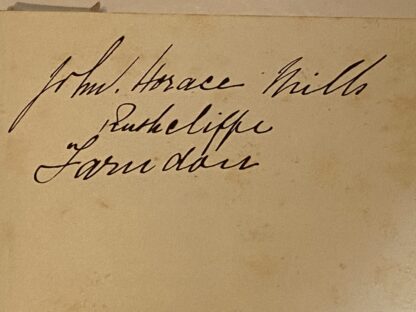 John. Horace Mills
Ruthcliffe
Farndon